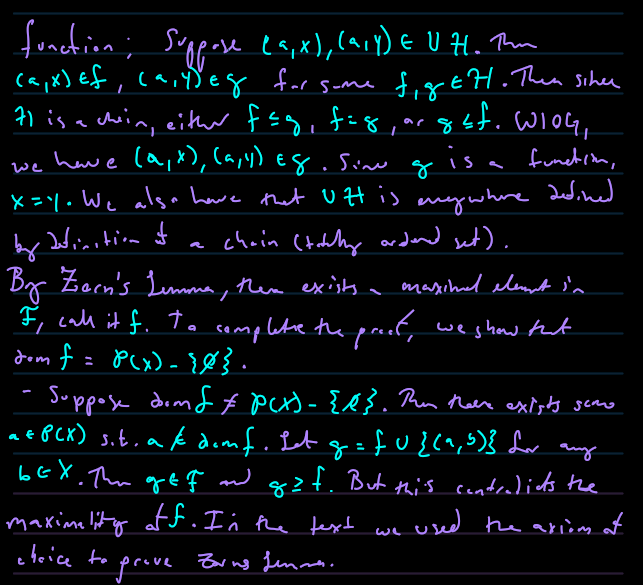 function; Suppose (a,x),(a,y) ∈ ∪ℋ. Then
(a,x) ∈ f, (a,y) ∈ g for some f,g ∈ ℋ. Then since
ℋ is a chain, either f ≤ g, f = g, or g ≤ f. WLOG,
we have (a,x),(a,y) ∈ g. Since g is a function,
x = y. We also have that ∪ℋ is everywhere defined
by definition of a chain (totally ordered set).
By Zorn's Lemma, there exists a maximal element in
ℱ, call it f. To complete the proof, we show that
dom f = P(x) - {∅}.
- Suppose dom f ≠ P(x) - {∅}. Then there exists some
a ∈ P(X) s.t. a ∉ dom f. Let g = f ∪ {(a,b)} for any
b ∈ X. Then g ∈ ℱ and g ≥ f. But this contradicts the
maximality of f. In the text we used the axiom of
choice to prove Zorns Lemma.